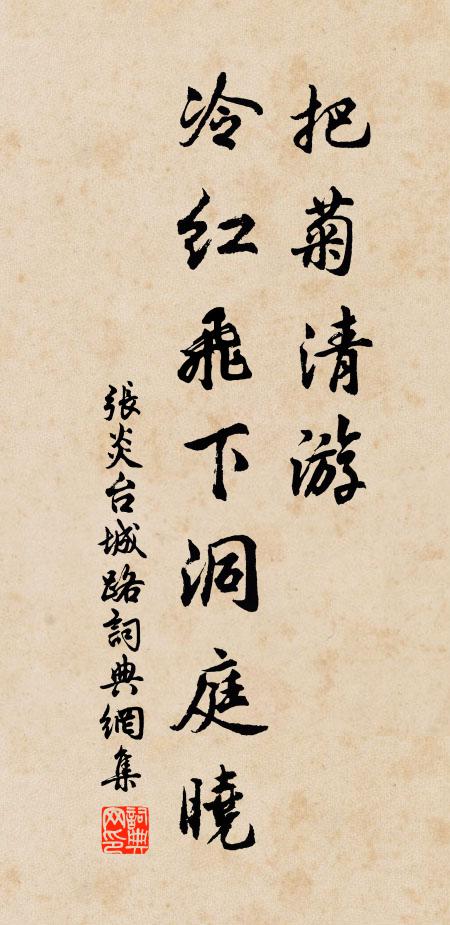 把菊清游
冷红飛下洞庭曉
張炎台城路詞典網集
詞典网印